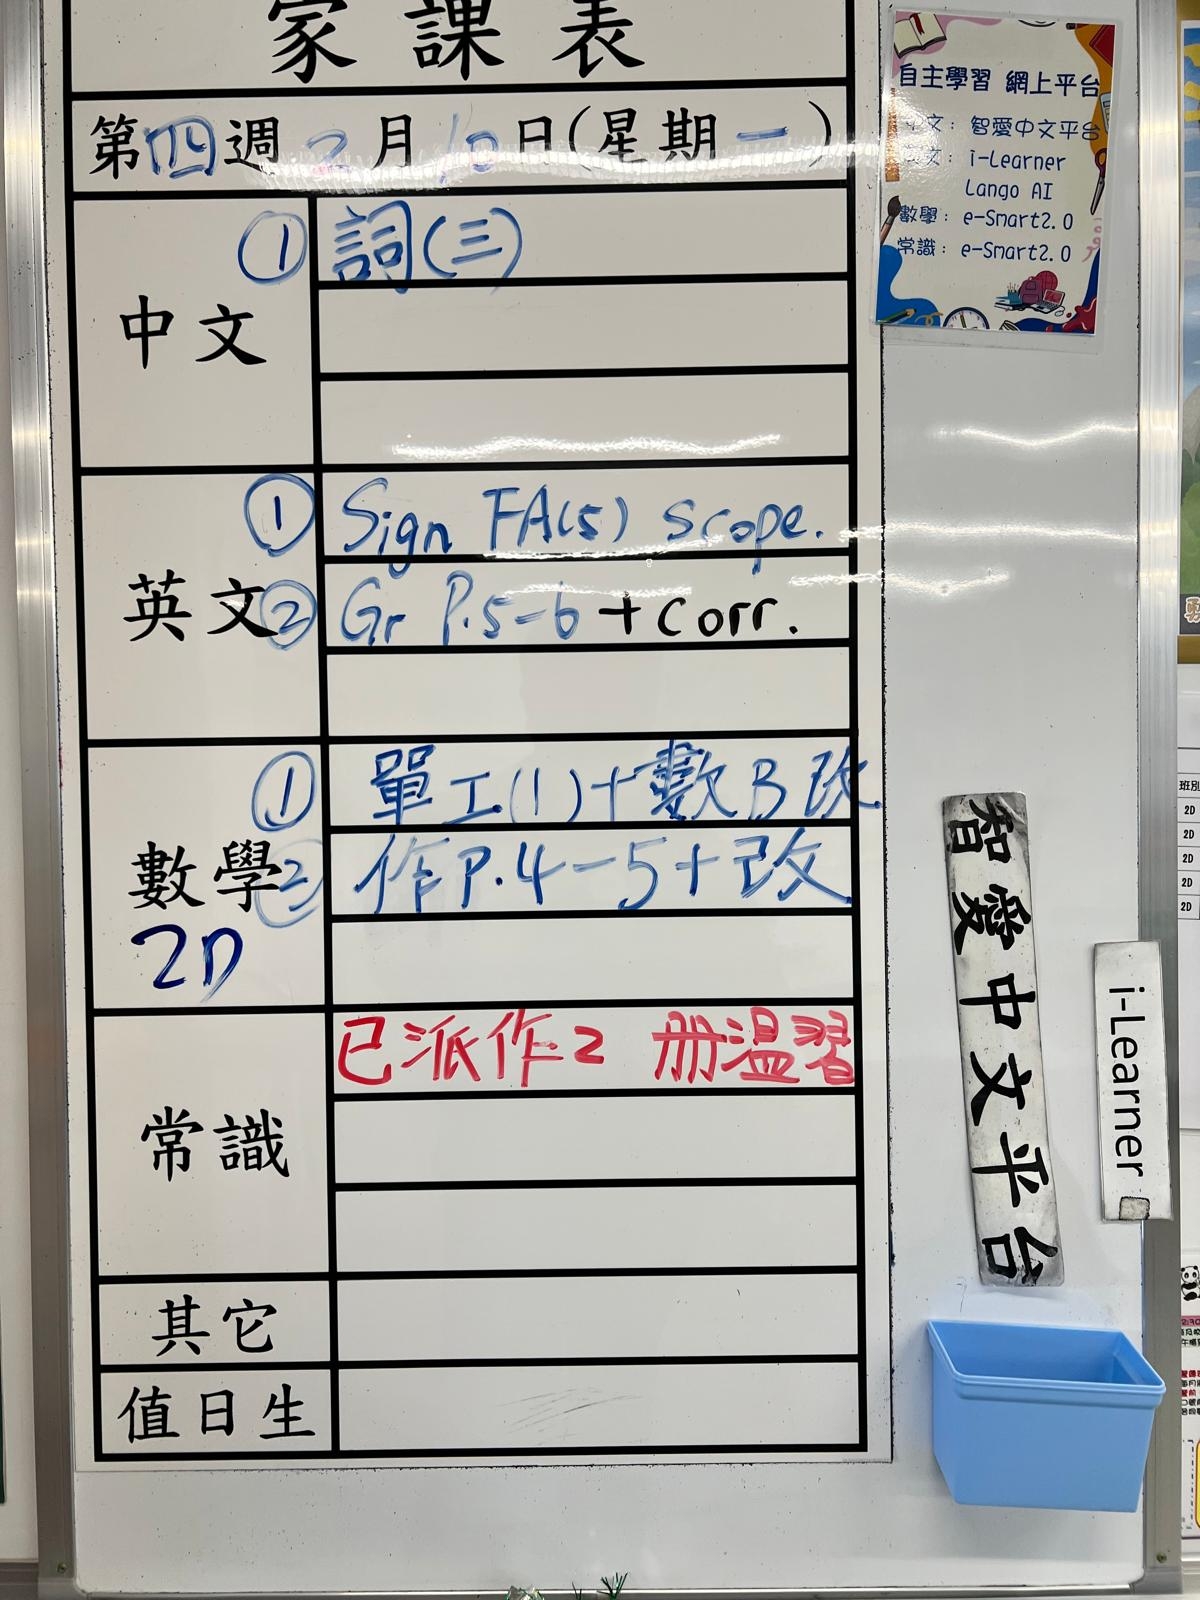 家課表
第四週2月10日(星期一)
中文
① 詞(三)
英文
① Sign FA(5) scope.
② Gr P.5-6 + corr.
數學
2D
① 單工(1)+數B改
② 作P.4-5+改
常識
已派作2 册温習
其它
值日生
自主學習 網上平台
中文: 智愛中文平台
英文: i-Learner
Lango AI
數學: e-Smart2.0
常識: e-Smart2.0
智愛中文平台
i-Learner
班別
2D
2D
2D
2D
2D